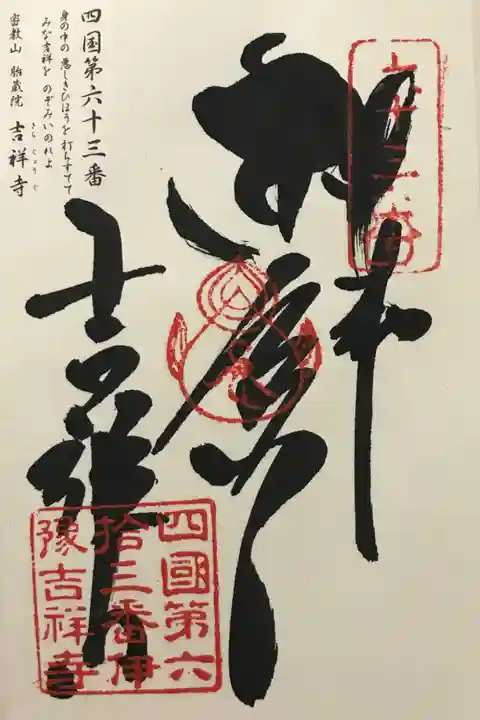 六十三番
四國第六
拾三番伊
豫吉祥寺
吉祥寺
四国第六十三番
身の中の 悪しきひほうを 打ちすてて
みな吉祥を のぞみいのれよ
密教山 胎蔵院 吉祥寺
きち じょう じ